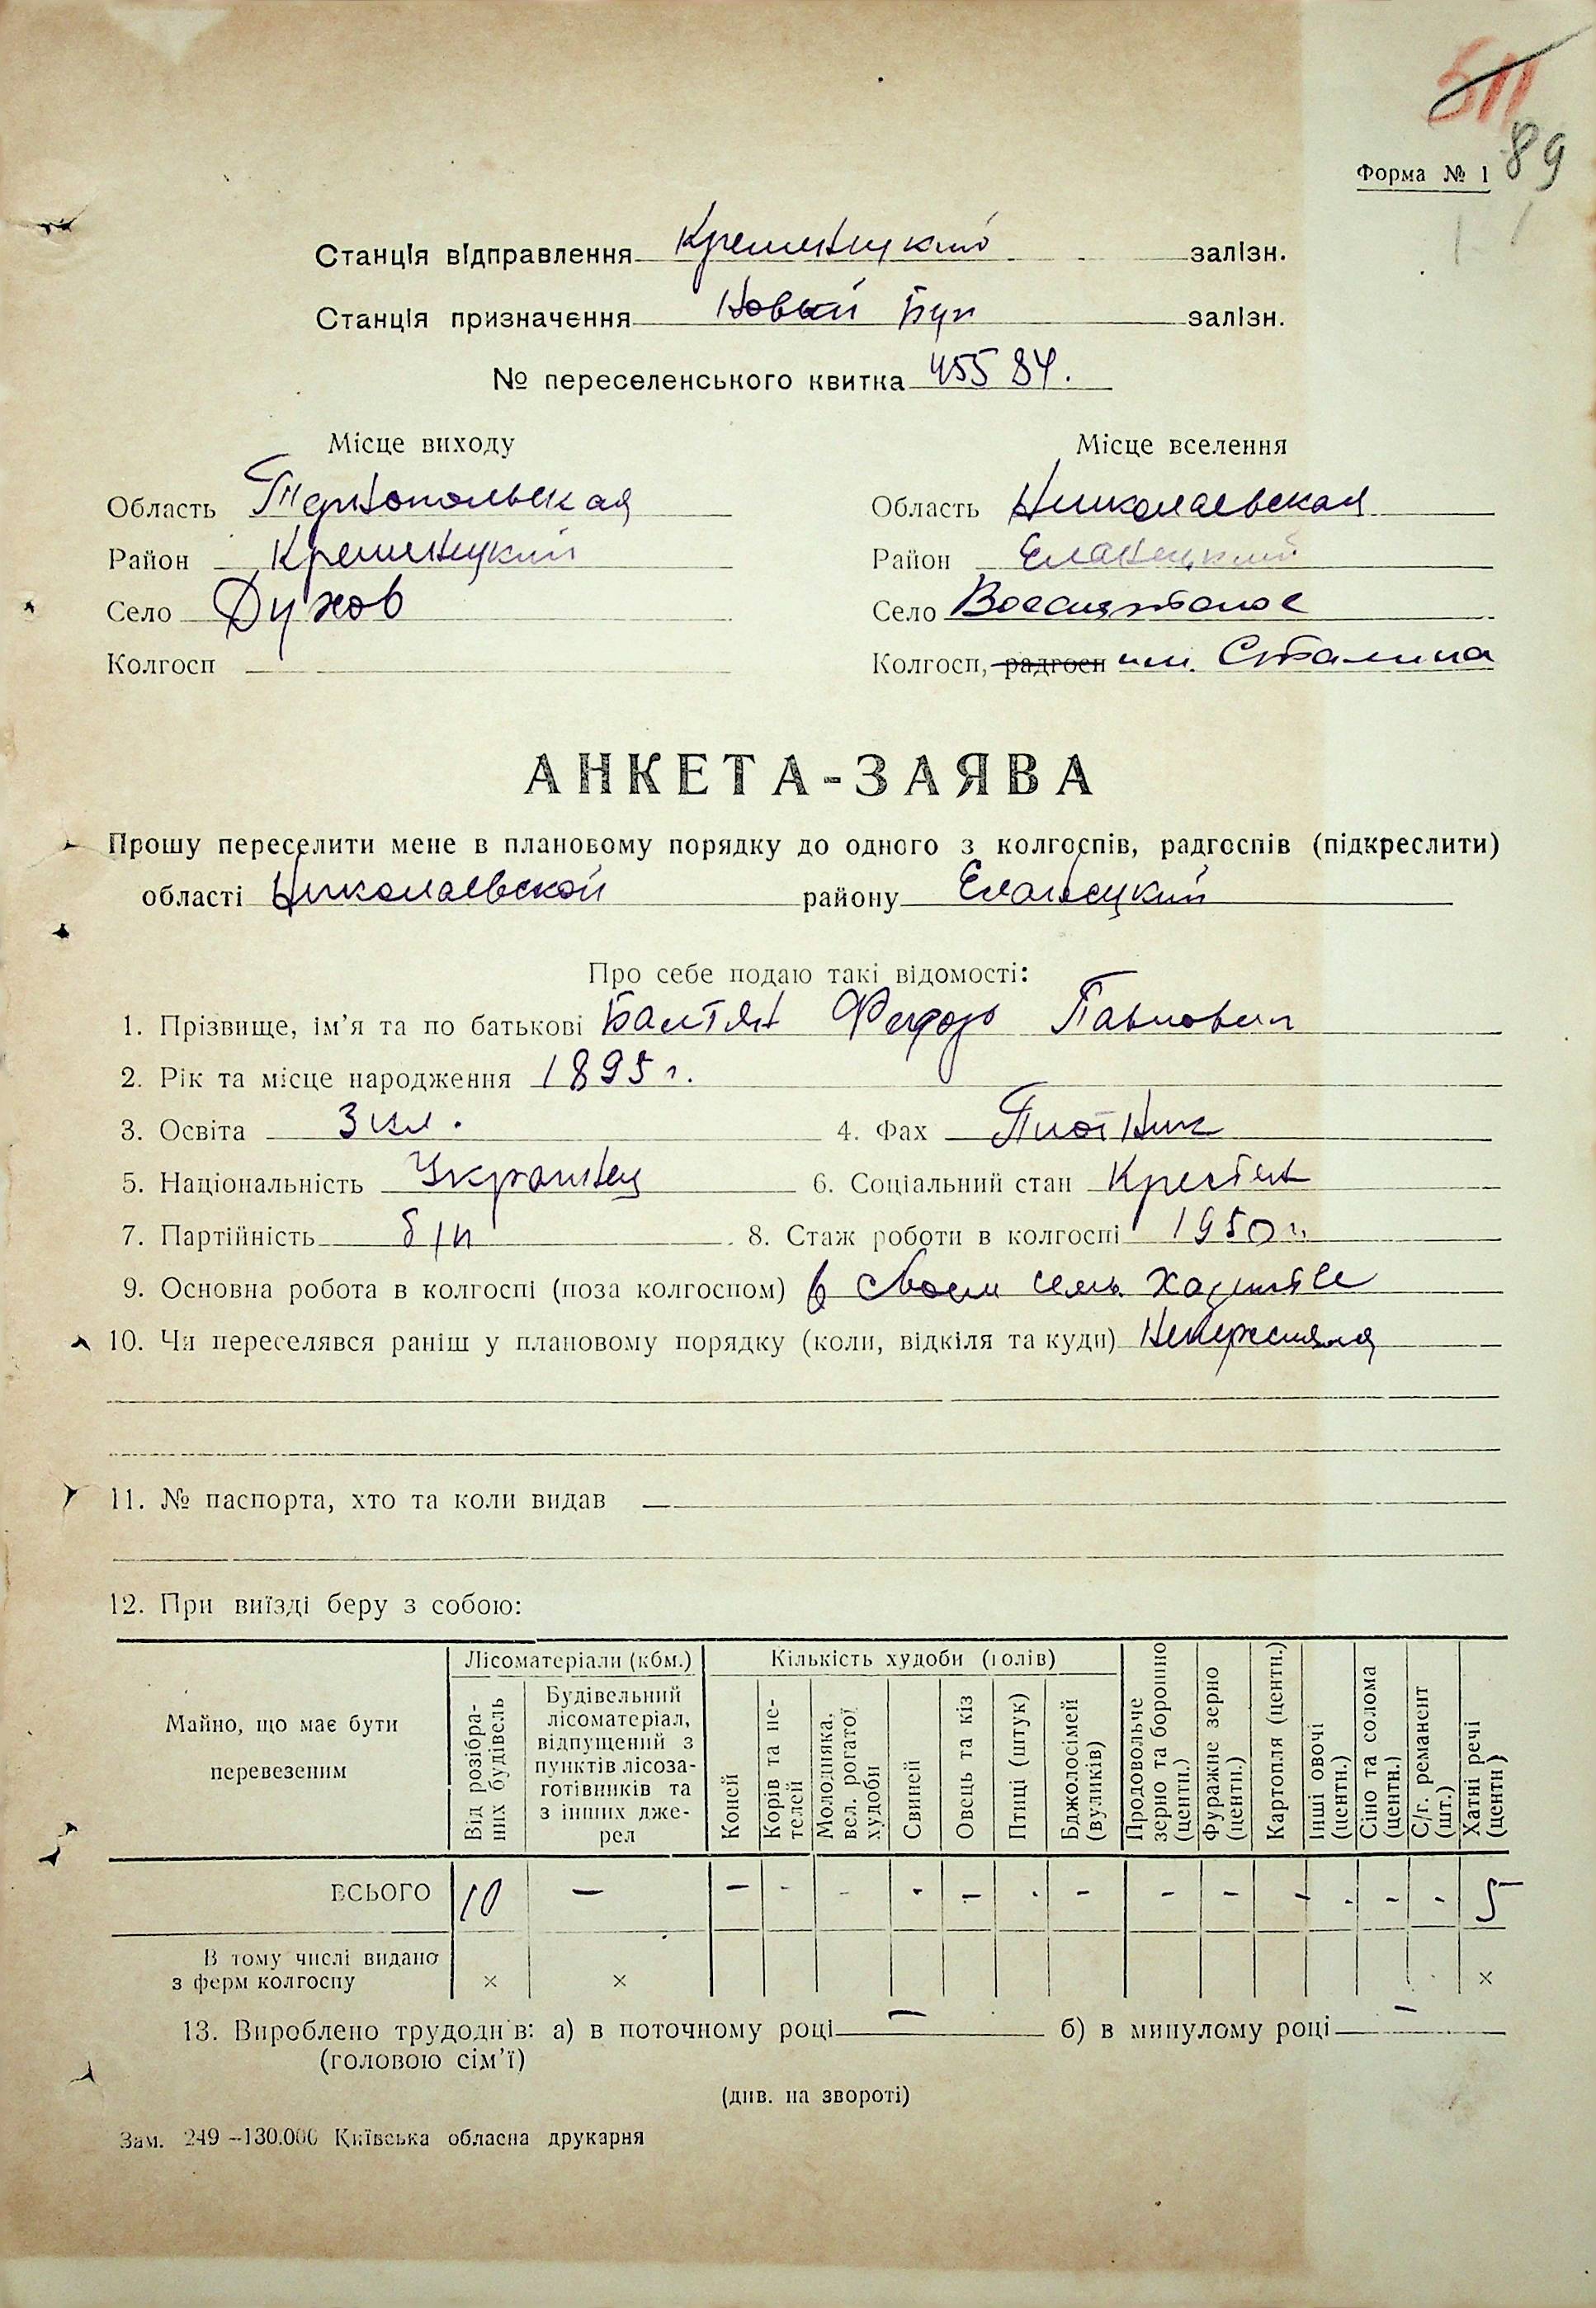 511
89
Форма № 1
Станція відправлення Кременецкий залізн.
Станція призначення Новый Буг залізн.
№ переселенського квитка 45584.
Місце виходу
Місце вселення
Область Тернопольская
Область Николаевская
Район Кременецкий
Район Еланецкий
Село Духов
Село
Колгосп —
Колгосп, радгосп им. Сталина
АНКЕТА-ЗАЯВА
Прошу переселити мене в плановому порядку до одного з колгоспів, радгоспів (підкреслити)
області Николаевской району Еланецкий
Про себе подаю такі відомості:
1. Прізвище, ім'я та по батькові Федор Павлович
2. Рік та місце народження 1895 г.
3. Освіта 3 кл.
4. Фах Плотник
5. Національність Украинец
6. Соціальний стан Крестян
7. Партійність б/п
8. Стаж роботи в колгоспі 1950 г.
9. Основна робота в колгоспі (поза колгоспом) в своем сель.
10. Чи переселявся раніш у плановому порядку (коли, відкіля та куди)
11. № паспорта, хто та коли видав —
12. При виїзді беру з собою:
Майно, що має бути перевезеним
Лісоматеріали (кбм.)
Кількість худоби (голів)
Від розібраних будівель
Будівельний лісоматеріал, відпущений з пунктів лісозаготівників та з інших джерел
Коней
Корів та нетелей
Молодняка, вел. рогатої худоби
Свиней
Овець та кіз
Птиці (штук)
Бджолосімей (вуликів)
Продовольче зерно та борошно (центн.)
Фуражне зерно (центн.)
Картопля (центн.)
Інші овочі (центн.)
Сіно та солома (центн.)
С/г. реманент (шт.)
Хатні речі (центн)
ВСЬОГО 10 — — - - - — - - - - — - - - 5
В тому числі видано
з ферм колгоспу × × ×
13. Вироблено трудоднів: а) в поточному році — б) в минулому році —
(головою сім'ї)
(див. на звороті)
Зам. 249—130.000 Київська обласна друкарня